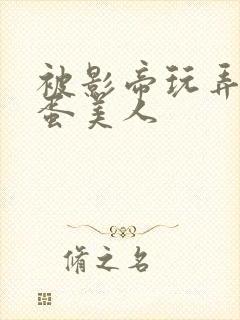 被影帝玩弄
蛋美人
脩之名